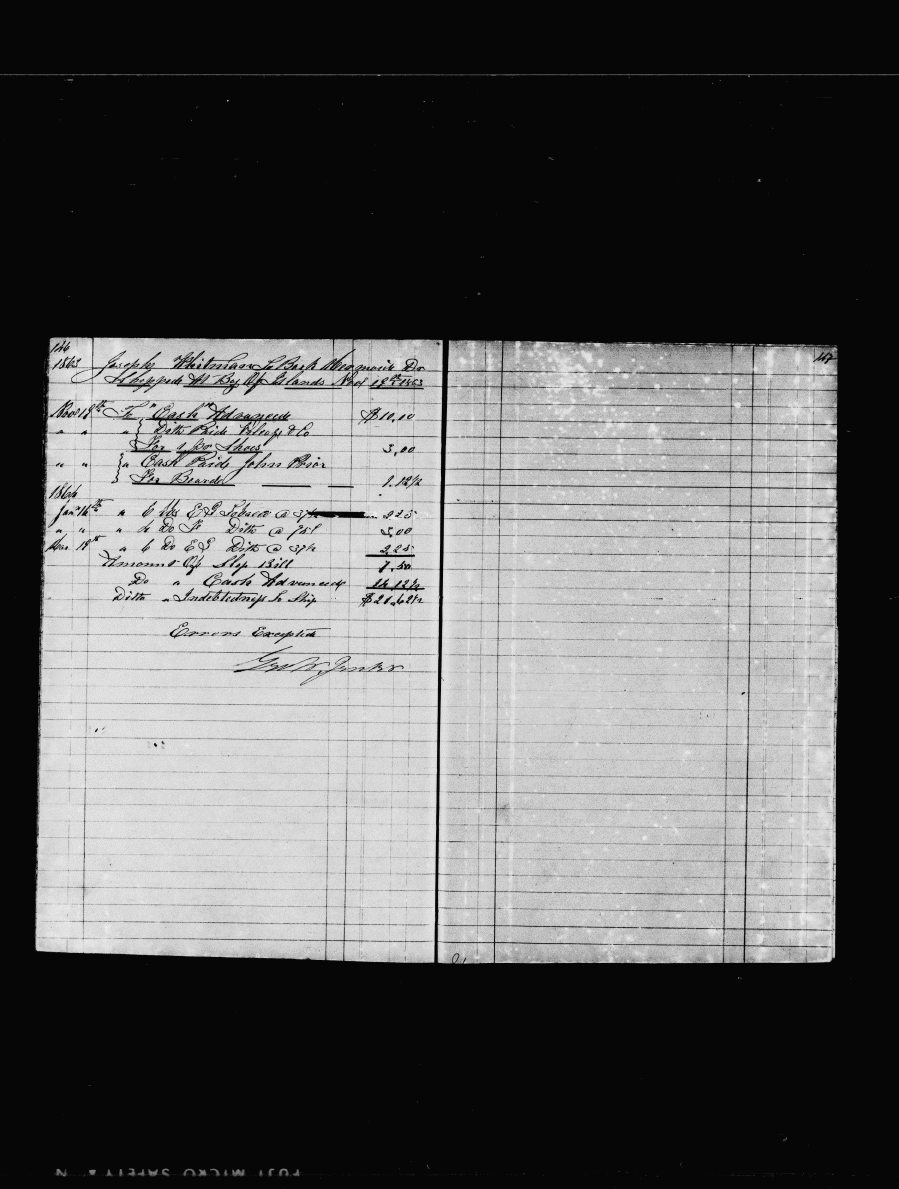 146
1863 Joseph Whitman To Bark Mermaid Dr
Shipped At Bay Of Islands Nov 19th 1863
Nov 19th To "Cash" Advanced $10,00
" " " Ditto Paid & Co
For 1 pr Shoes 3,00
" " " Cash Paid John Prior
For Board 1.12½
1864
Jany 14th " 6 lbs E G Tobacco @ 37½ 2.25
" " " 4 Do Ditto @ 75c 3,00
Mar 19th " 6 Do E G Ditto @ 37½ 2,25
Amount Of Slop Bill 7.50
Do " Cash Advanced 14.12½
Ditto " Indebtedness To Ship $21.62½
Errors Excepted
Geo W Jenks
147
FUJI MICRO SAFETY